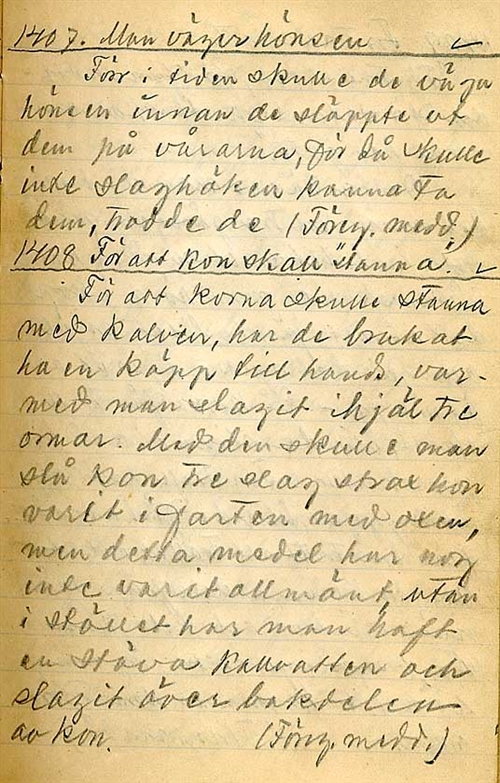 1407. Man väger hönsen ✓
Förr i tiden skulle de väga
hönsen innan de släppte ut
dem på vårarna, för då skulle
inte slaghöken kunna ta
dem, trodde de (Föreg. medd.)
1408 För att kon skall "stanna". ✓
För att korna skulle stanna
med kalven, har de brukat
ha en käpp till hands, var-
med man slagit ihjäl tre
ormar. Med den skulle man
slå kon tre slag strax hon
varit i farten med oxen,
men detta medel har nog
inte varit allmänt, utan
i stället har man haft
en stäva kallvatten och
slagit över bakdelen
av kon. (Föreg. medd.)